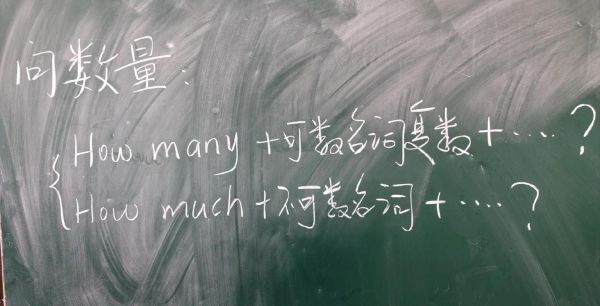 问数量:
How many + 可数名词复数 + ....?
How much + 不可数名词 + ....?